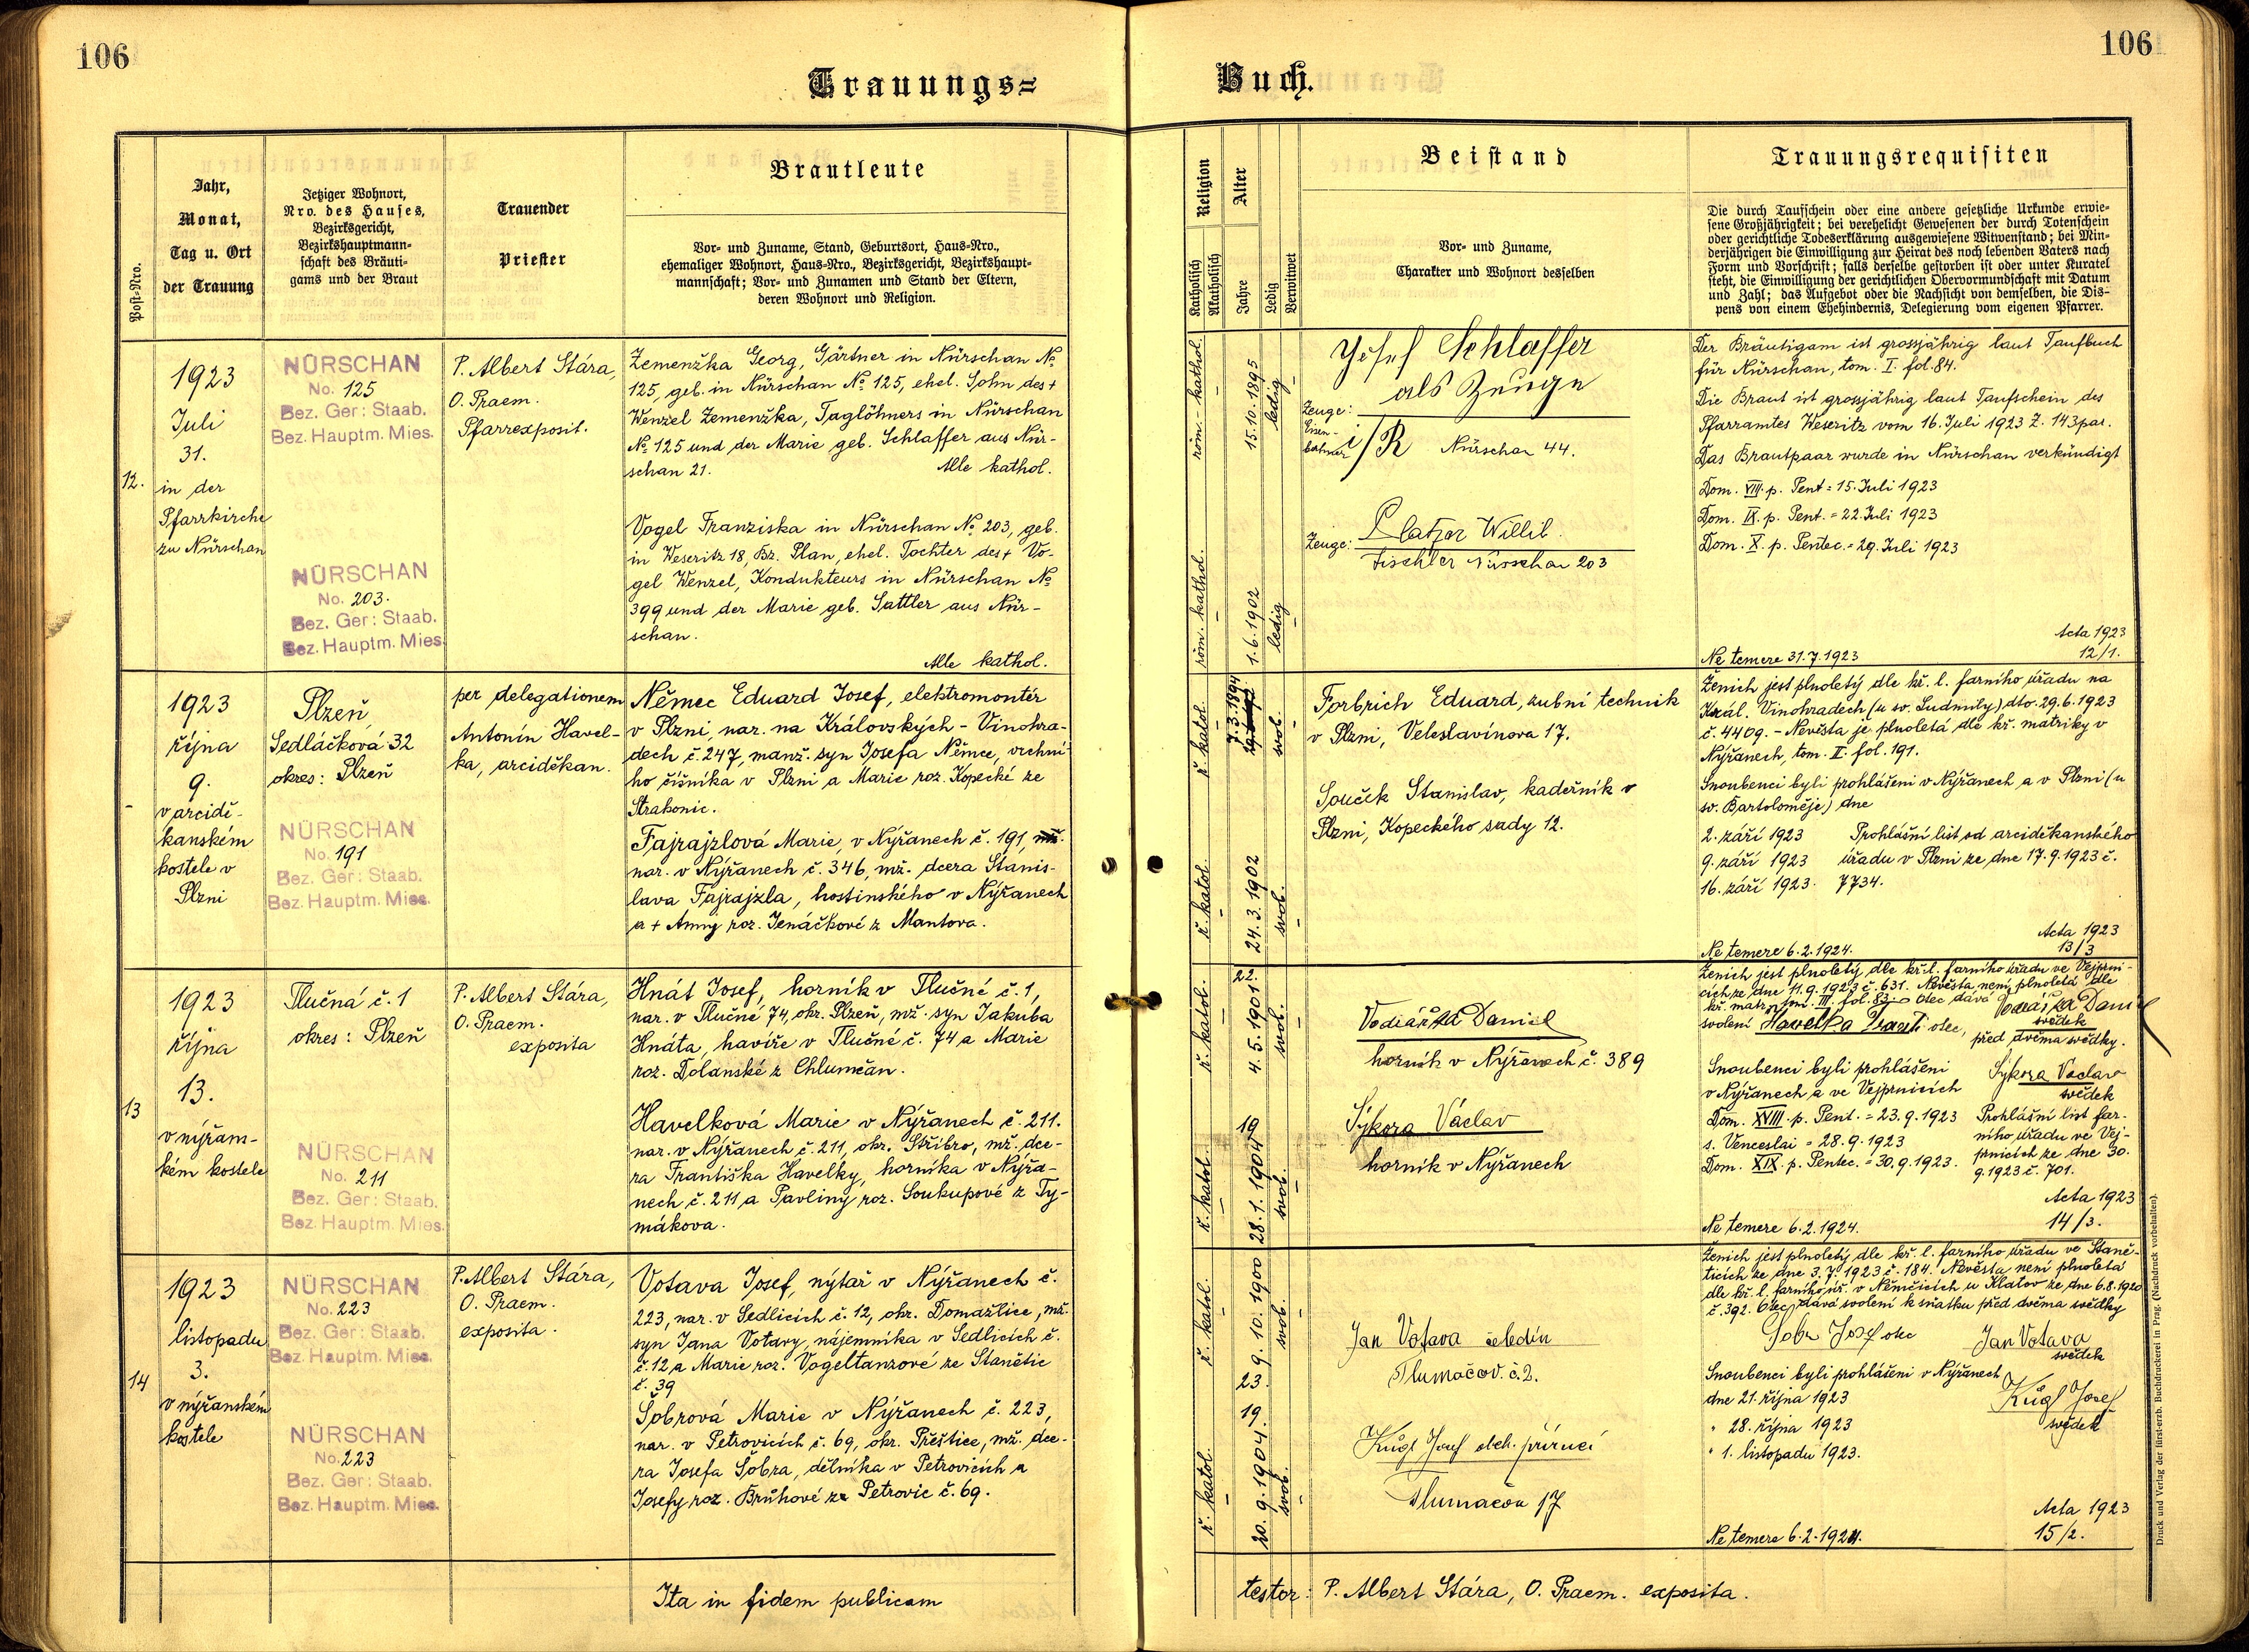 106
106
Trauungs=
Buch.
Post-Nro.
Jahr,
Monat,
Tag u. Ort
der Trauung
Jetziger Wohnort,
Nro. des Hauses,
Bezirksgericht,
Bezirkshauptmann-
schaft des Bräuti-
gams und der Braut
Trauender
Priester
Brautleute
Vor- und Zuname, Stand, Geburtsort, Haus-Nro.,
ehemaliger Wohnort, Haus-Nro., Bezirksgericht, Bezirkshaupt-
mannschaft; Vor- und Zunamen und Stand der Eltern,
deren Wohnort und Religion.
Religion
Katholisch
Akatholisch
Alter
Jahre
Ledig
Verwitwet
Beistand
Vor- und Zuname,
Charakter und Wohnort desselben
Trauungsrequisiten
Die durch Taufschein oder eine andere gesetzliche Urkunde erwie-
sene Großjährigkeit; bei verehelicht Gewesenen der durch Totenschein
oder gerichtliche Todeserklärung ausgewiesene Witwenstand; bei Min-
derjährigen die Einwilligung zur Heirat des noch lebenden Vaters nach
Form und Vorschrift; falls derselbe gestorben ist oder unter Kuratel
steht, die Einwilligung der gerichtlichen Obervormundschaft mit Datum
und Zahl; das Aufgebot oder die Nachsicht von demselben, die Dis-
pens von einem Ehehindernis, Delegierung vom eigenen Pfarrer.
12.
1923
Juli
31.
in der
Pfarrkirche
zu Nürschan
NÜRSCHAN
No. 125
Bez. Ger: Staab.
Bez. Hauptm. Mies.
NÜRSCHAN
No. 203.
Bez. Ger: Staab.
Bez. Hauptm. Mies.
P. Albert Stára,
O. Praem.
Pfarrexposit.
Zemenžka Georg, Gärtner in Nürschan №
125, geb. in Nürschan № 125, ehel. Sohn des +
Wenzel Zemenžka, Taglöhners in Nürschan
№ 125 und der Marie geb. Schlaffer aus Nür-
schan 21. Alle kathol.
Vogel Franziska in Nürschan № 203, geb.
in Weseritz 18, Bz. Plan, ehel. Tochter des + Vo-
gel Wenzel, Kondukteurs in Nürschan №
399 und der Marie geb. Sattler aus Nür-
schan.
Alle kathol.
röm.- kathol.
15.10.1895
ledig
röm. kathol.
1.6.1902
ledig
Josef Schlaffer
als Zeuge
Zeuge:
Eisen-
bahner i/R Nürschan 44.
Zeuge: Willib.
Tischler Nürschan 203
Der Bräutigam ist grossjährig laut Taufbuch
für Nürschan, tom. I. fol. 84.
Die Braut ist grossjährig laut Taufschein des
Pfarramtes Weseritz vom 16. Juli 1923 Z. 143 par.
Das Brautpaar wurde in Nürschan verkündigt
Dom. VIII. p. Pent = 15. Juli 1923
Dom. IX. p. Pent. = 22. Juli 1923
Dom. X. p. Pentec. = 29. Juli 1923
Acta 1923
Ne temere 31.7.1923 12/1.
1923
října
9.
v arcidě-
kanském
kostele v
Plzni
Plzeň
Sedláčková 32
okres: Plzeň
NÜRSCHAN
No. 191
Bez. Ger: Staab.
Bez. Hauptm. Mies.
per delegationem
Antonín Havel-
ka, arciděkan.
Němec Eduard Josef, elektromontér
v Plzni, nar. na Královských - Vinohra-
dech č. 247, manž. syn Josefa Němce, vrchní-
ho číšníka v Plzni a Marie roz. Kopecké ze
Strakonic.
Fajrajzlová Marie, v Nýřanech č. 191, mž.
nar. v Nýřanech č. 346, mž. dcera Stanis-
lava Fajrajzla, hostinského v Nýřanech
a + Anny roz. Jenáčkové z Mantova.
ř. katol.
7.3.1894
svob.
ř. katol.
24.3.1902
svob.
Forbrich Eduard, zubní technik
v Plzni, Veleslavínova 17.
Souček Stanislav, kadeřník v
Plzni, Kopeckého sady 12.
Ženich jest plnoletý dle kř. l. farního úřadu na
Král. Vinohradech (u sv. Ludmily) dto. 29.6.1923
č. 4409. - Nevěsta je plnoletá dle kř. matriky v
Nýřanech, tom. II. fol. 191.
Snoubenci byli prohlášeni v Nýřanech a v Plzni (u
sv. Bartoloměje) dne
2. září 1923 Prohlášní list od arciděkanského
9. září 1923 úřadu v Plzni ze dne 17.9.1923 č.
16. září 1923. 7734.
Acta 1923
Ne temere 6.2.1924. 13/3
13
1923
října
13.
v nýřan-
kém kostele
Tlučná č. 1
okres: Plzeň
NÜRSCHAN
No. 211
Bez. Ger: Staab.
Bez. Hauptm. Mies.
P. Albert Stára,
O. Praem.
exposita
Hnát Josef, horník v Tlučné č. 1,
nar. v Tlučné 74, okr. Plzeň, mž. syn Jakuba
Hnáta, havíře v Tlučné č. 74 a Marie
roz. Dolanské z Chlumčan.
Havelková Marie v Nýřanech č. 211.
nar. v Nýřanech č. 211, okr. Stříbro, mž. dce-
ra Františka Havelky, horníka v Nýřa-
nech č. 211 a Pavliny roz. Soukupové z Ty-
mákova.
ř. katol.
22.
4.5.1901
svob.
ř. katol.
19
28.1.1904
svob.
Vodiářka Daniel
horník v Nýřanech č. 389
Sýkora Václav
horník v Nýřanech
Ženich jest plnoletý dle kř. l. farního úřadu ve Vejprni-
cích ze dne 11.9.1923 č. 631. Nevěsta není plnoletá dle
kř. matr. tom. III. fol. 83. Otec dává
svolení Havelka Frant. otec, svědek
před dvěma svědky.
Snoubenci byli prohlášeni Sýkora Václav
v Nýřanech a ve Vejprnicích svědek
Dom. XVIII. p. Pent. = 23.9.1923 Prohlášní list far-
s. Venceslai = 28.9.1923 ního úřadu ve Vej-
Dom. XIX. p. Pentec. = 30.9.1923. prnicích ze dne 30.
9.1923 č. 701.
Acta 1923
Ne temere 6.2.1924. 14/3.
14
1923
listopadu
3.
v nýřanském
kostele
NÜRSCHAN
No. 223
Bez. Ger: Staab.
Bez. Hauptm. Mies.
NÜRSCHAN
No. 223
Bez. Ger: Staab.
Bez. Hauptm. Mies.
P. Albert Stára,
O. Praem.
exposita.
Votava Josef, nýtař v Nýřanech č.
223, nar. v Sedlicích č. 12, okr. Domažlice, mž.
syn Jana Votavy, nájemníka v Sedlicích č.
č. 12 a Marie roz. Vogeltanzové ze Stanětic
č. 39
Šobrová Marie v Nýřanech č. 223,
nar. v Petrovicích č. 69, okr. Přeštice, mž. dce-
ra Josefa Šobra, dělníka v Petrovicích a
Josefy roz. Brůhové ze Petrovic č. 69.
ř. katol.
9.10.1900
23.
svob.
ř. katol.
19.
20.9.1904.
svob.
Jan Votava čeledín
Tlumačov. č. 2.
Kůgl Josef obch. příručí
Tlumačov 17
Ženich jest plnoletý dle kř. l. farního úřadu ve Staně-
ticích ze dne 3.7.1923 č. 184. Nevěsta není plnoletá
dle kř. l. farního úř. v Němčicích u Klatov ze dne 6.8.1920
č. 392. Otec dává svolení k sňatku před dvěma svědky
Šobr Josef otec Jan Votava
svědek
Snoubenci byli prohlášeni v Nýřanech
dne 21. října 1923 Kůgl Josef
" 28. října 1923 svědek
" 1. listopadu 1923.
Acta 1923
Ne temere 6.2.1924. 15/2.
Ita in fidem publicam
testor: P. Albert Stára, O. Praem. exposita.
Druck und Verlag der fürsterzb. Buchdruckerei in Prag. (Nachdruck vorbehalten).